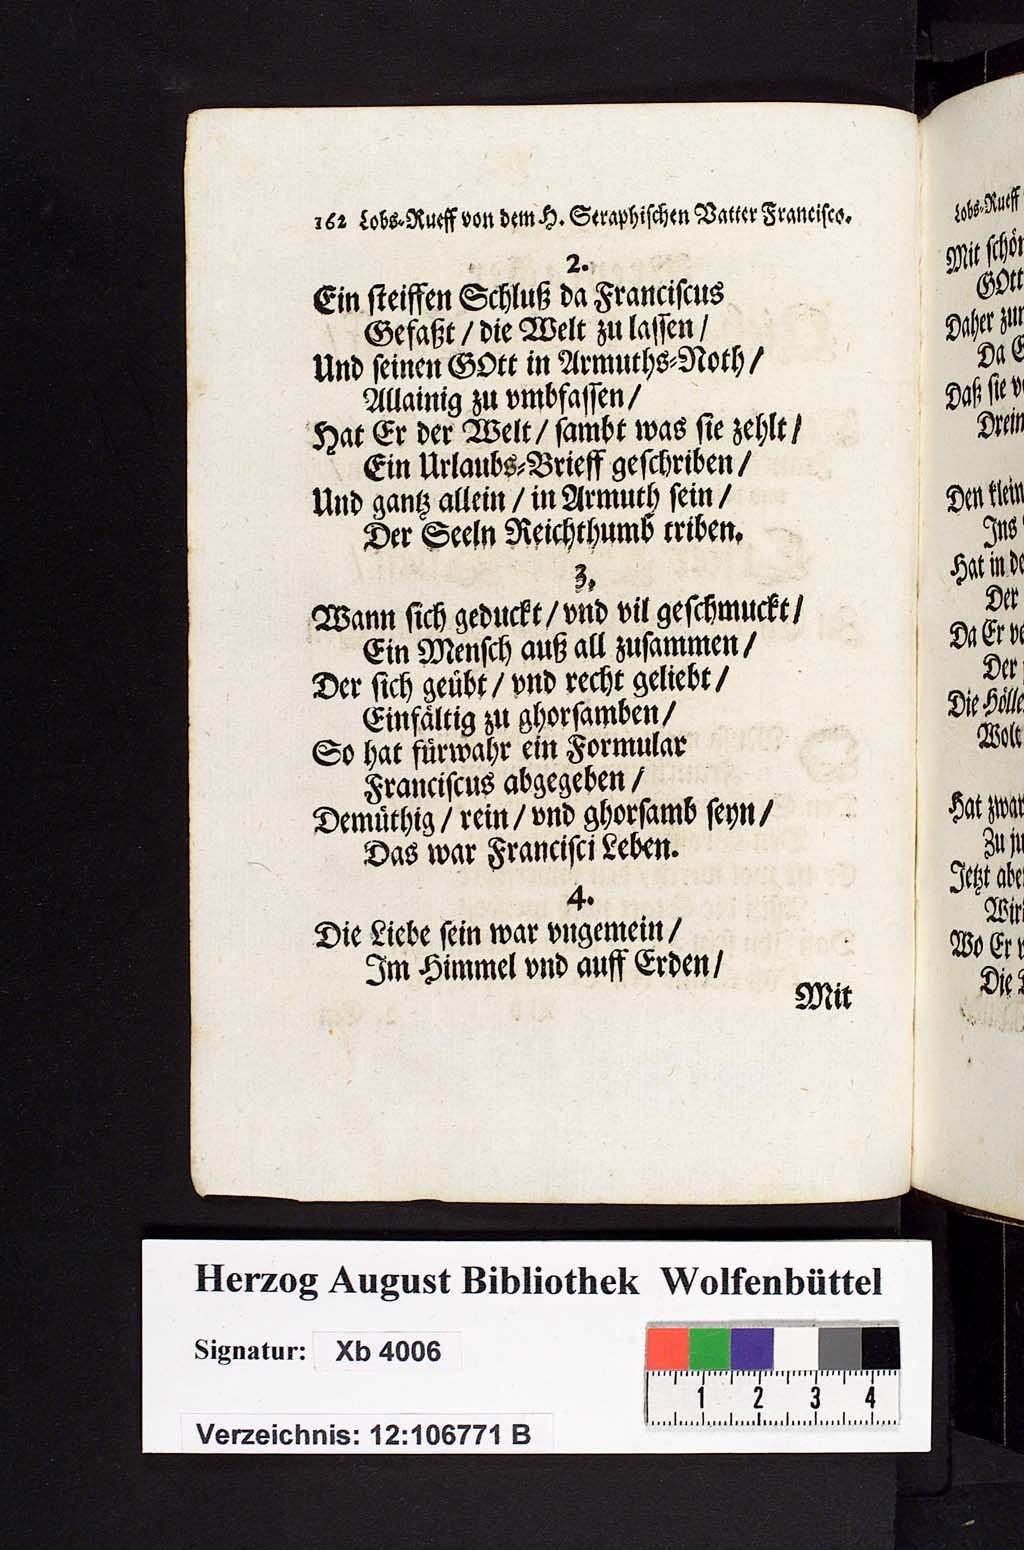 162 Lobs-Rueff von dem H. Seraphischen Vatter Francisco.
2.
Ein steiffen Schluß da Franciscus
Gefaßt / die Welt zu lassen /
Und seinen GOtt in Armuths-Noth /
Allainig zu vmbfassen /
Hat Er der Welt / sambt was sie zehlt /
Ein Urlaubs-Brieff geschriben /
Und gantz allein / in Armuth sein /
Der Seeln Reichthumb triben.
3.
Wann sich geduckt / vnd vil geschmuckt /
Ein Mensch auß all zusammen /
Der sich geübt / vnd recht geliebt /
Einfältig zu ghorsamben /
So hat fürwahr ein Formular
Franciscus abgegeben /
Demüthig / rein / vnd ghorsamb seyn /
Das war Francisci Leben.
4.
Die Liebe sein war vngemein /
Im Himmel vnd auff Erden /
Mit
Lobs-Rueff
Mit schön
GOtt
Daher zur
Da E
Daß sie
Drein
Den klein
Ins
Hat in de
Der
Da Er ve
Der
Die Hölle
Wolt
Hat zwar
Zu ju
Jetzt aber
Wir
Wo Er
Die
Herzog August Bibliothek Wolfenbüttel
Signatur: Xb 4006
1 2 3 4
Verzeichnis: 12:106771 B